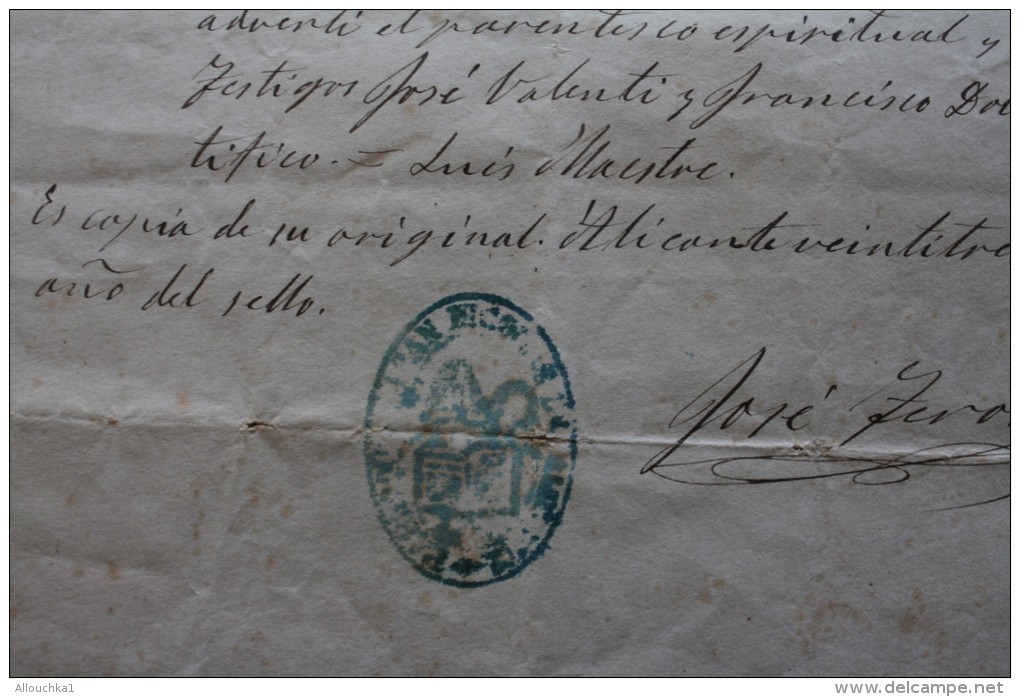 adverti el parentesco espiritual y
Testigos José Valenti y Francisco
tifico. = Luis Maestre.
Es copia de su original. Alicante veintitre
año del sello.
SAN NICOLAS
José
Allouchka1
www.delcampe.net